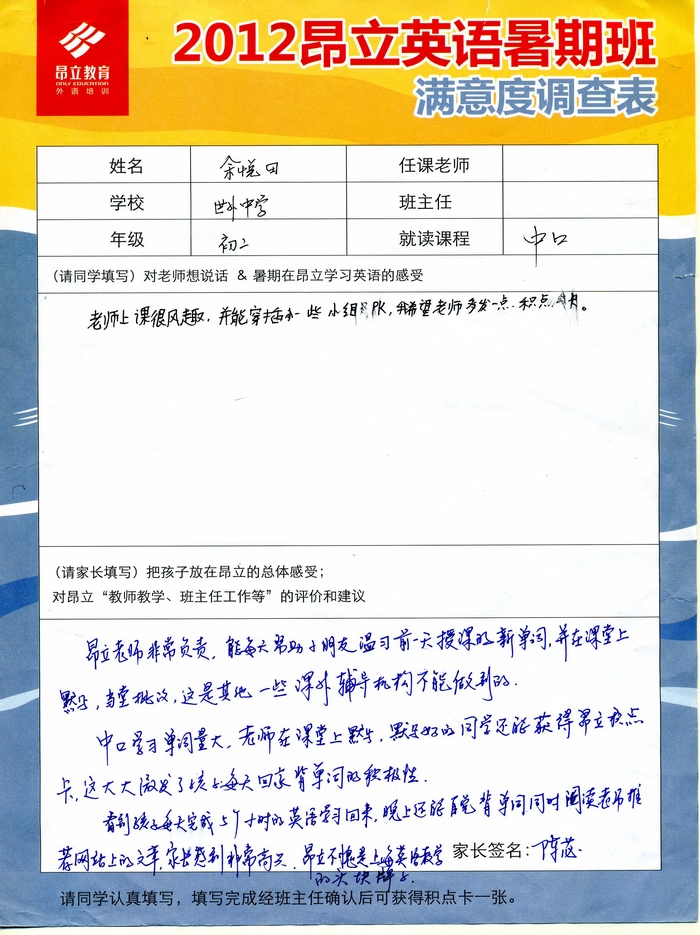 昂立教育
ONLY EDUCATION
外语培训
2012昂立英语暑期班
满意度调查表
姓名 余悦田 任课老师
学校 世外中学 班主任
年级 初二 就读课程 中口
(请同学填写) 对老师想说话 & 暑期在昂立学习英语的感受
老师上课很风趣，并能穿插一些小组PK，希望老师多发一点积点卡。
(请家长填写) 把孩子放在昂立的总体感受；
对昂立“教师教学、班主任工作等”的评价和建议
昂立老师非常负责，能每天帮助小朋友温习前一天授课的新单词，并在课堂上
默写，当堂批改，这是其他一些课外辅导机构不能做到的.
中口学习单词量大，老师在课堂上默写，默写好的同学还能获得昂立积点
卡，这大大激发了孩子每天回家背单词的积极性.
看到孩子每天完成5个小时的英语学习回来，晚上还能自觉背单词同时阅读老师推
荐网站上的文章，家长感到非常高兴. 昂立不愧是上海英语教学
的头块牌子.
家长签名：陈
请同学认真填写，填写完成经班主任确认后可获得积点卡一张。